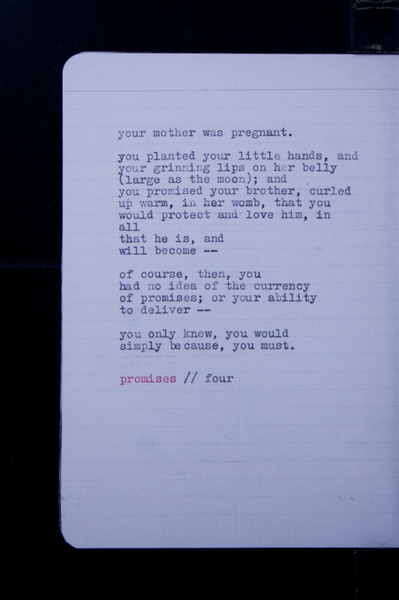 your mother was pregnant.
you planted your little hands, and
your grinning lips on her belly
(large as the moon); and
you promised your brother, curled
up warm, in her womb, that you
would protect and love him, in
all
that he is, and
will become --
of course, then, you
had no idea of the currency
of promises; or your ability
to deliver --
you only knew, you would
simply because, you must.
promises // four